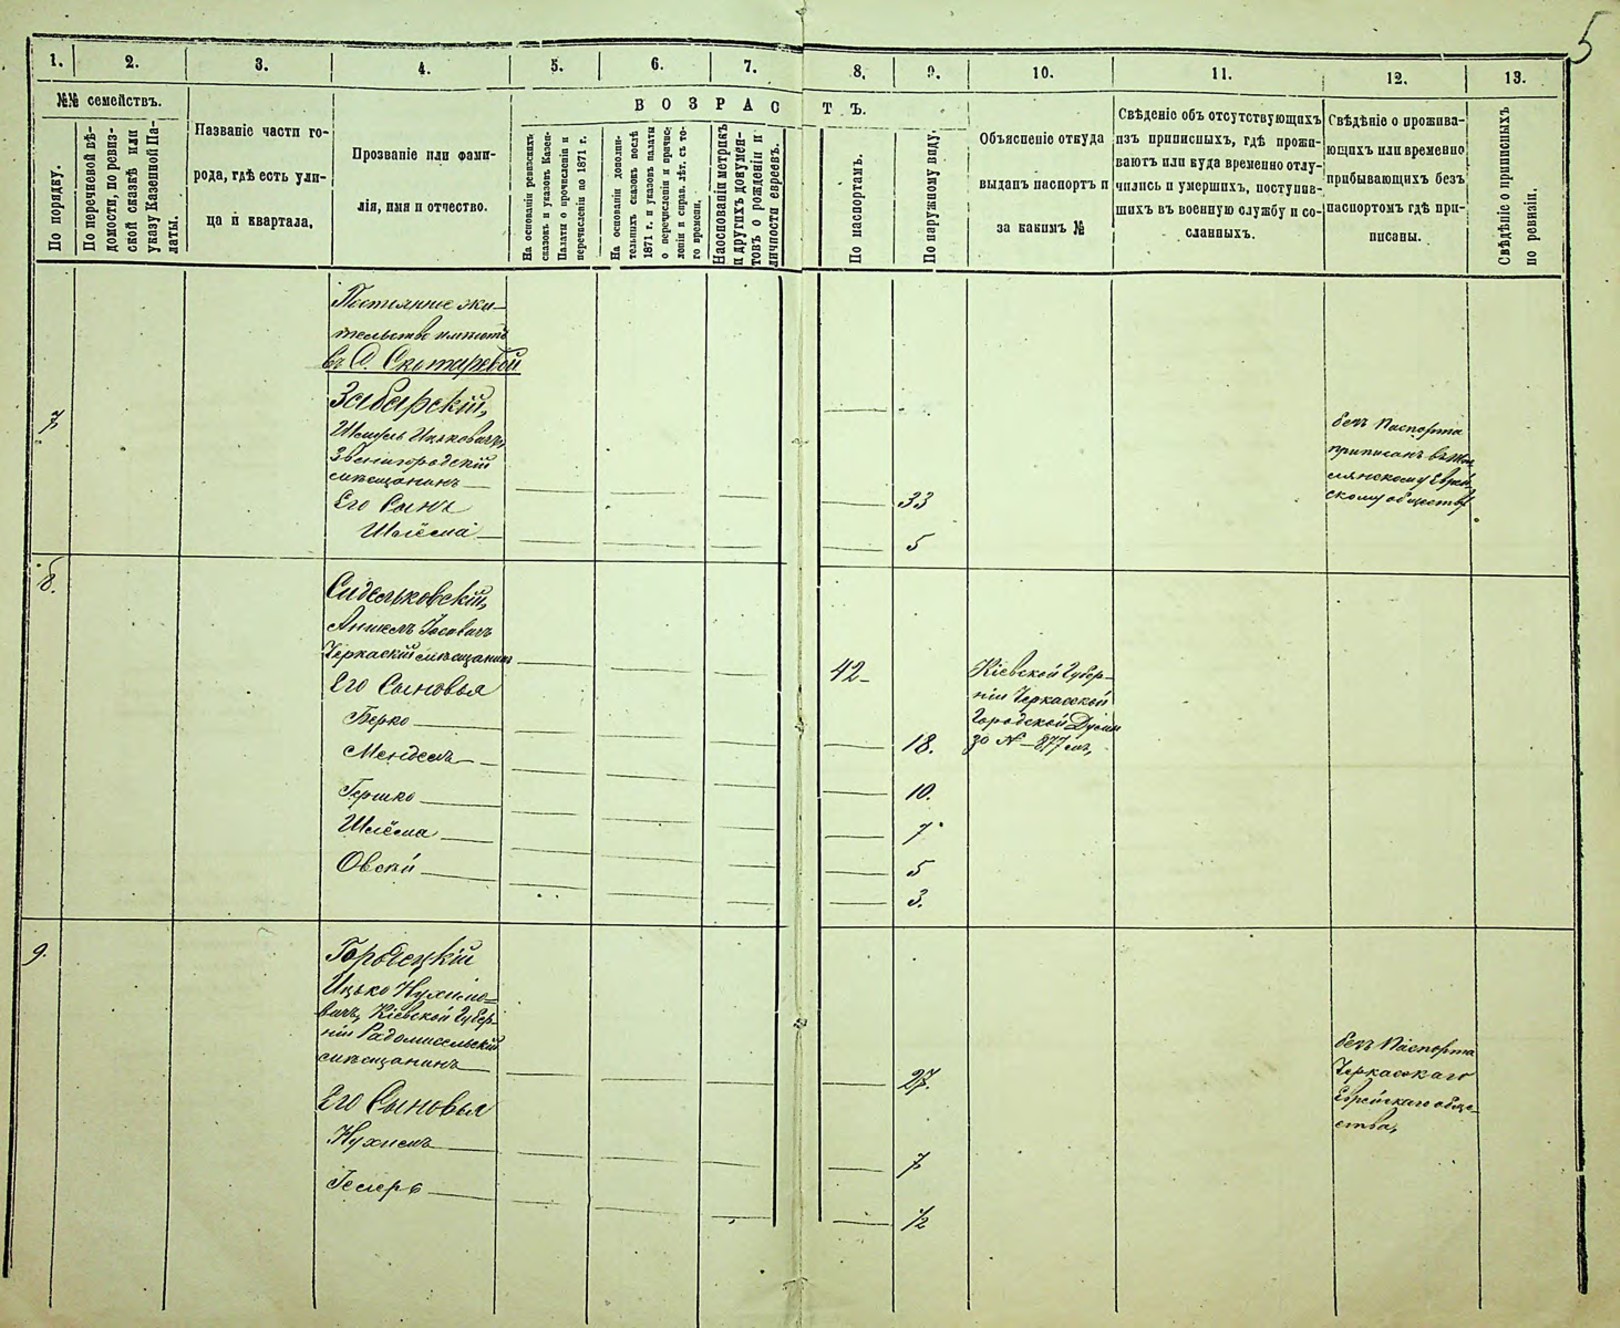 5
1. 2. 3. 4. 5. 6. 7. 8. 9. 10. 11. 12. 13.
№№ семействъ.
По порядку.
По перечневой вѣ-
домости, по ревиз-
ской сказкѣ или
указу Казенной Па-
латы.
Названіе части го-
рода, гдѣ есть ули-
ца и квартала,
Прозваніе или фами-
лія, имя и отчество.
ВОЗРАСТЪ.
На основаніи ревизскихъ
сказокъ и указовъ Казен-
Палаты о причисленіи и
перечисленіи по 1871 г.
На основаніи дополни-
тельныхъ сказокъ послѣ
1871 г. и указовъ палаты
о перечисленіи и причис-
леніи и справ. лѣт. съ то-
го времени,
На основаніи метрикъ
и другихъ докумен-
товъ о рожденіи и
личности евреевъ.
По паспортамъ.
По наружному виду.
Объясненіе откуда
выданъ паспортъ и
за какимъ №
Свѣденіе объ отсутствующихъ
изъ приписныхъ, гдѣ прожи-
ваютъ или куда временно отлу-
чились и умершихъ, поступив-
шихъ въ военную службу и со-
сланныхъ.
Свѣдѣніе о прожива-
ющихъ или временно
прибывающихъ безъ
паспортомъ гдѣ при-
писаны.
Свѣдѣніе о приписныхъ
по ревизіи.
Постоянное жи-
тельство имѣютъ
въ С. Скотаревой
7
Забарскій,
Шмуль Ицьковичъ,
Звенигородскій
мѣщанинъ
33
Его Сынъ
Шлёма
5
безъ Паспорта
приписанъ въ
Еврей-
скому обществу
8.
Сидельковскій,
Аншель Іосевичъ
Черкаскій мѣщанинъ
42
Его Сыновья
Берко
18.
Мендель
10.
Гершко
7
Шлёма
5
Овсій
3.
Кіевской Губер-
ніи Черкасской
Городской Думы
за № 877 мъ,
9.
Городецкій
Ицько Нухимо-
вичъ, Кіевской Губер-
ніи Радомысельскій
мѣщанинъ
27.
Его Сыновья
Нухимъ
7
1/2
безъ Паспорта
Черкасскаго
Еврейскаго обще-
ства,